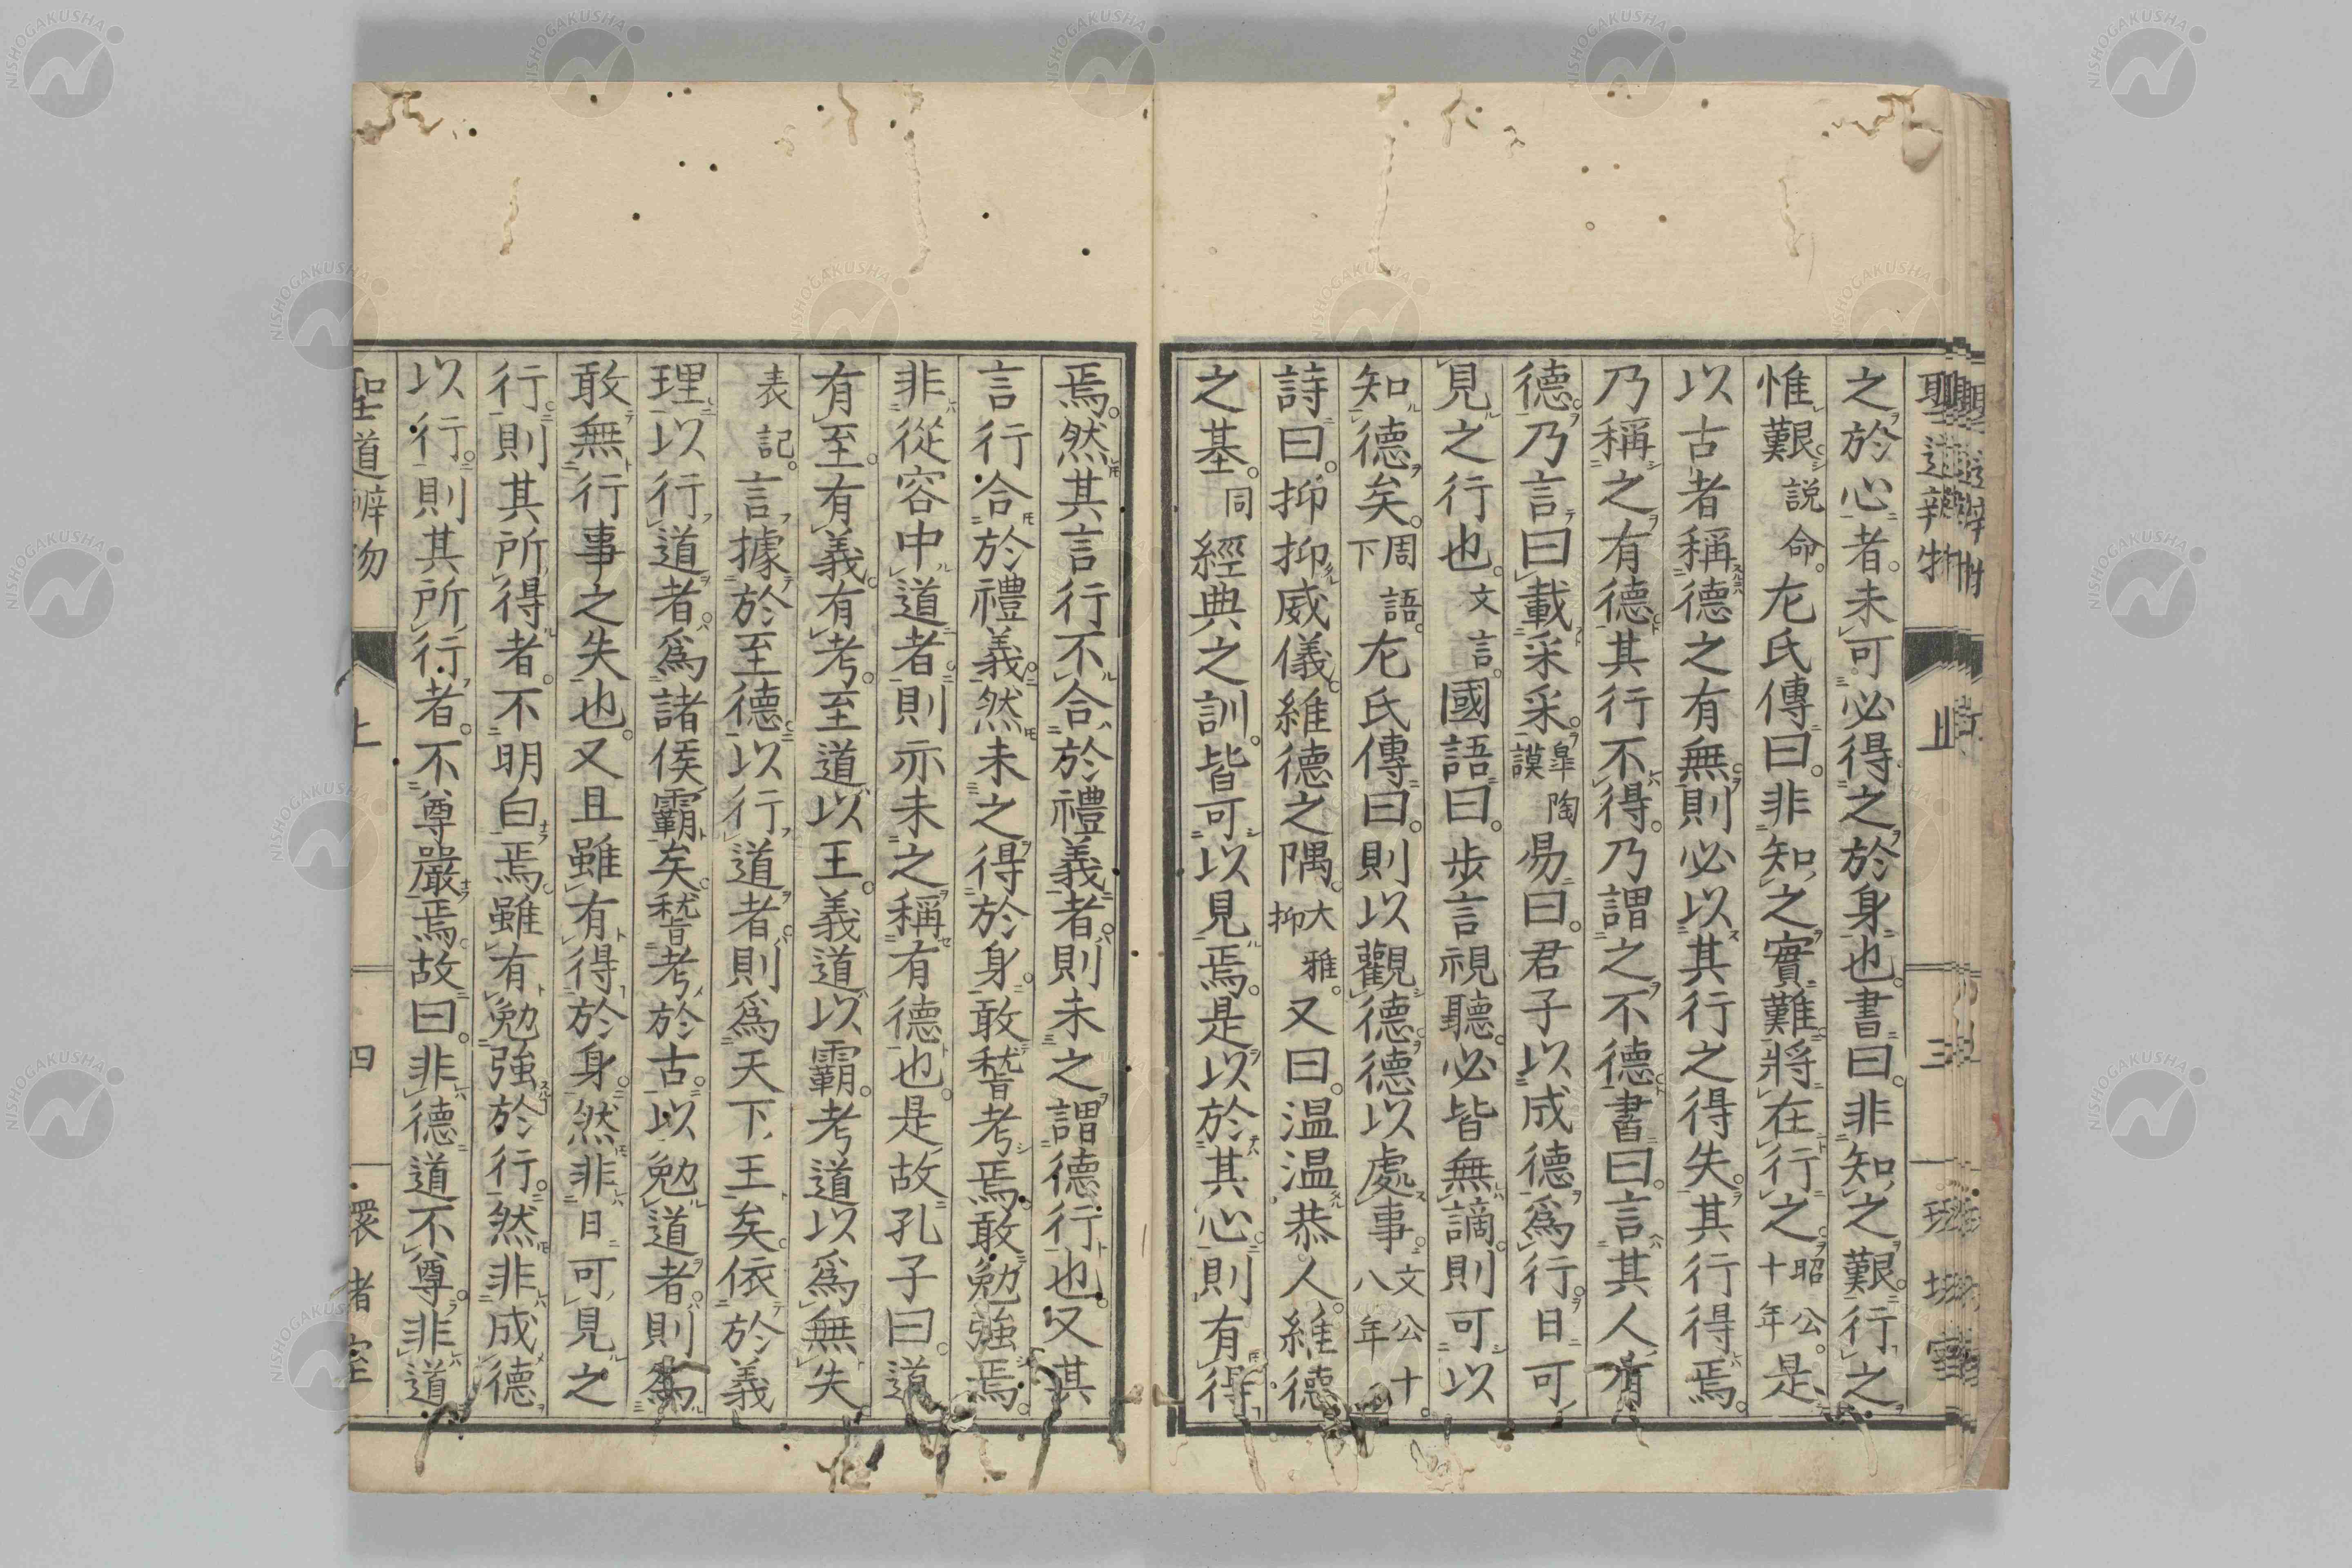 之於心者。未可必得之於身也。書曰。非知之艱。行之
惟艱。説命。左氏傳曰。非知之實難。將在行之。昭公十年。是
以古者稱德之有無。則必以其行之得失。其行得焉。
乃稱之有德。其行不得。乃謂之不德。書曰。言其人有
德。乃言曰。載采采。皐陶謨易曰。君子以成德爲行。日可
見之行也。文言。國語曰。步言視聽。必皆無謫。則可以
知德矣。周語下。左氏傳曰。則以觀德。德以處事。文公十八年。
詩曰。抑抑威儀。維德之隅。大雅抑。又曰。温温恭人。維德
之基。同經典之訓。皆可以見焉。是以於其心。則有得
焉。然其言行不合於禮義者。則未之謂德行也。又其
言行合於禮義。然未之得於身。敢稽考焉。敢勉強焉。
非從容中道者。則亦未之稱有德也。是故孔子曰。道
有至。有義。有考。至道以王。義道以霸。考道以爲無失
表記。言據於至德。以行道者。則爲天下王矣。依於義
理以行道者。爲諸侯霸矣。稽考於古。以勉道者。則爲
敢無行事之失也。又且雖有得於身。然非日可見之
行。則其所得者。不明白焉。雖有勉強於行。然非成德
以行。則其所行者。不尊嚴焉。故曰。非德道不尊。非道
聖道辨物 上 三
聖道辨物 上 四 環堵室
NISHOGAKUSHA